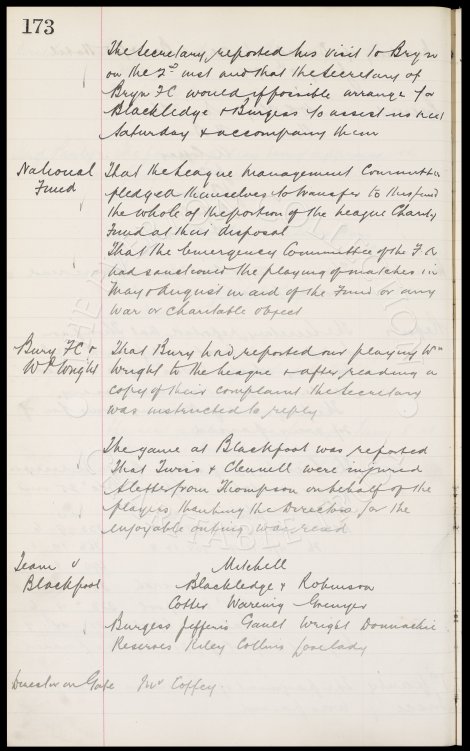 173
The Secretary reported his visit to Bryn
on the 2nd inst and that the Secretary of
Bryn FC would if possible arrange for
Blackledge & Burgess to assist us next
Saturday & accompany them
National Fund
That the League Management Committee
pledged themselves to transfer to this fund
the whole of the portion of the League Charity
Fund at their disposal
That the Emergency Committee of the F.A
had sanctioned the playing of matches in
May & August in aid of the Fund or any
War or Charitable object
Bury FC & Wm Wright
That Bury had reported our playing Wm
Wright to the League & after reading a
copy of their complaint the Secretary
was instructed to reply
The game at Blackpool was reported
That Twiss & Clennell were injured
A letter from Thompson on behalf of the
players, thanking the Directors for the
enjoyable outing was read.
Team v Blackpool
Mitchell
Blackledge & Robinson
Cotter Wareing Grenyer
Burgess Jefferis Gault Wright Donnachie
Reserves Riley Collins Lovelady
Director on Gate Mr Coffey